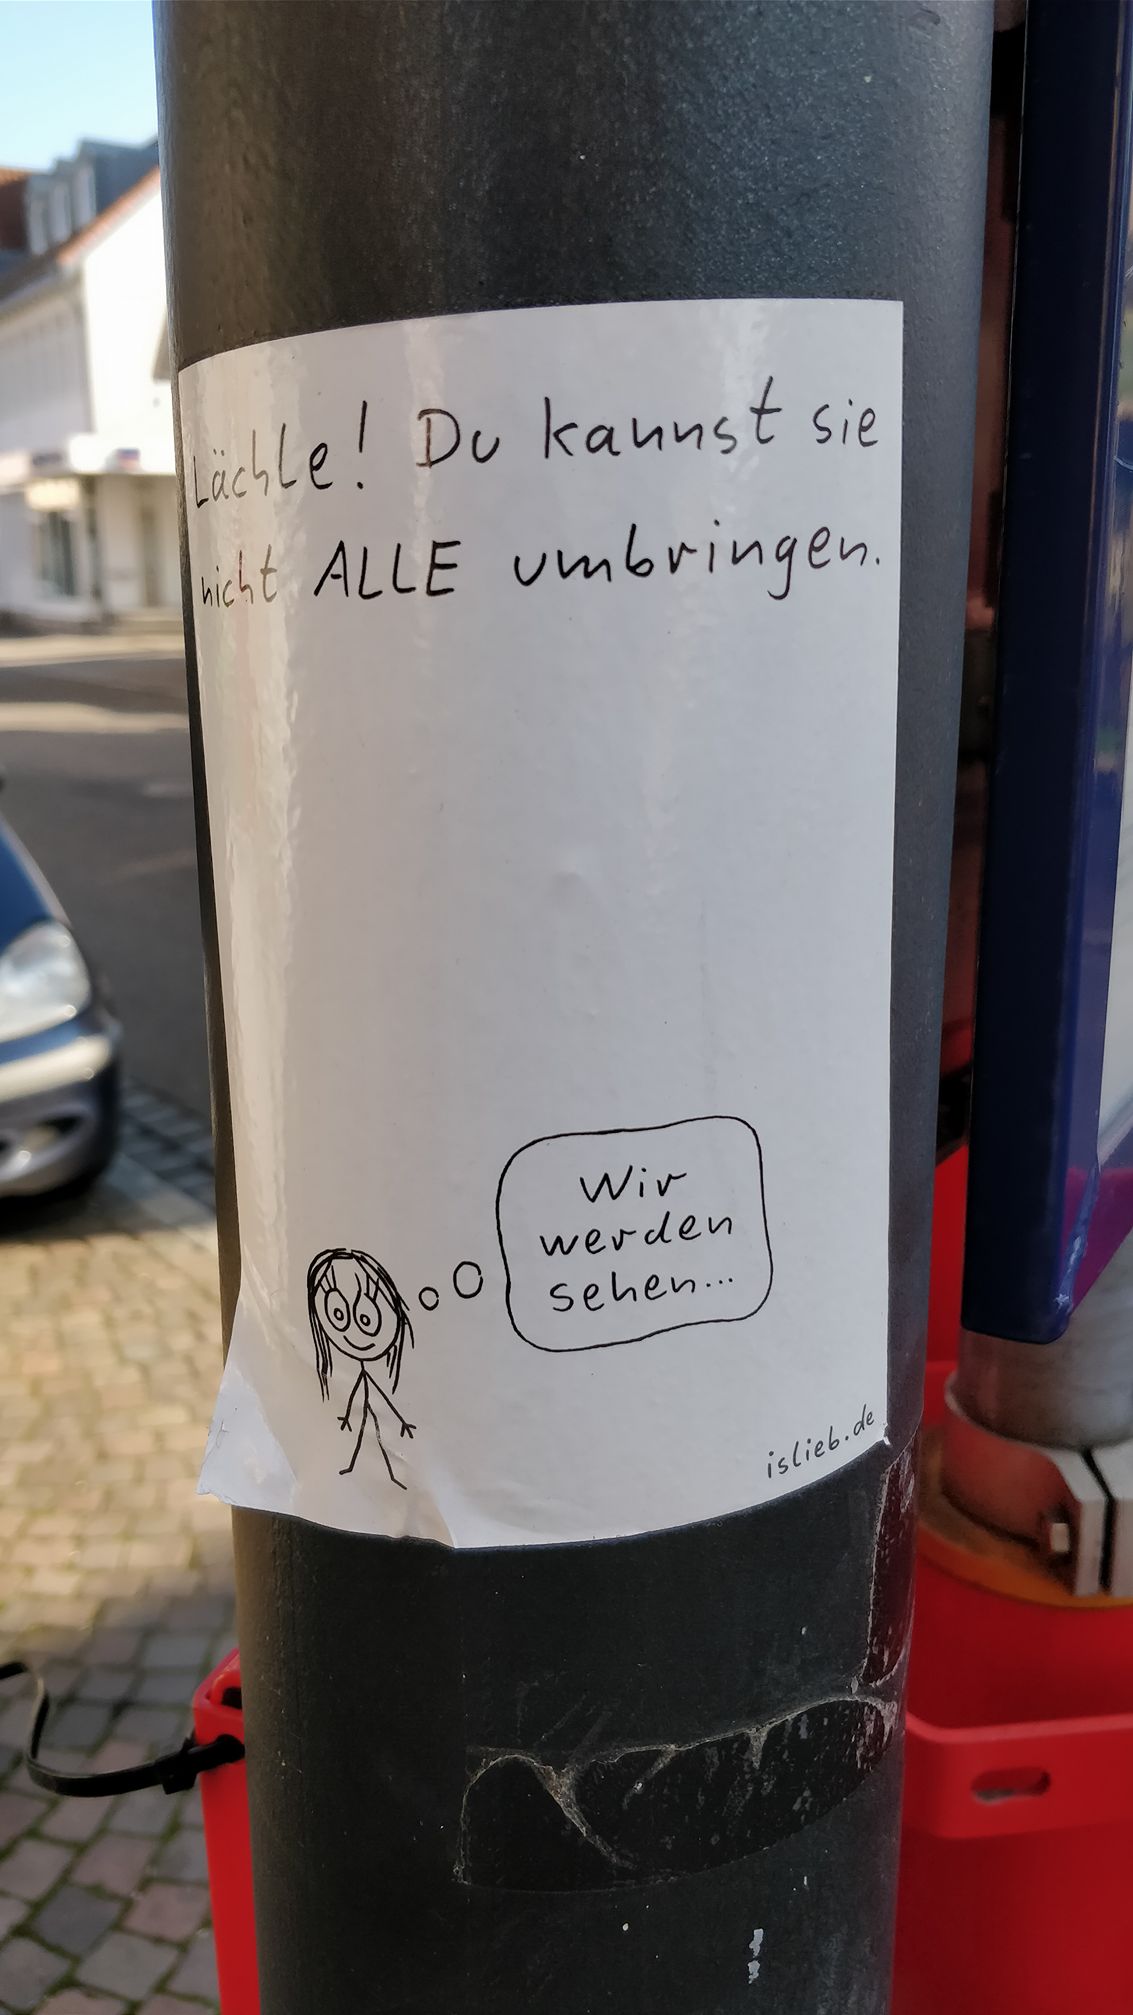 Lächle! Du kannst sie
nicht ALLE umbringen.
Wir
werden
sehen...
islieb.de